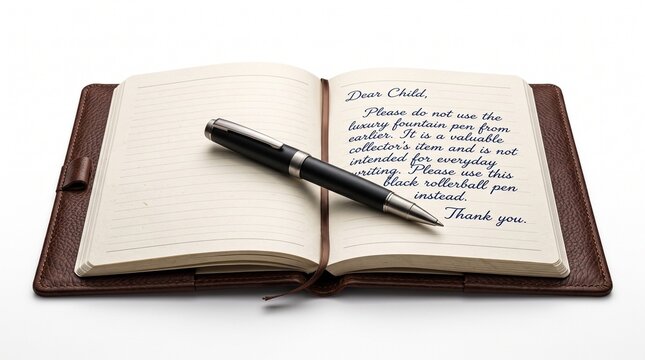 Dear Child,
Please do not use the
luxury fountain pen from
earlier. It is a valuable
collector's item and is not
intended for everyday
writing. Please use this
black rollerball pen
instead.
Thank you.